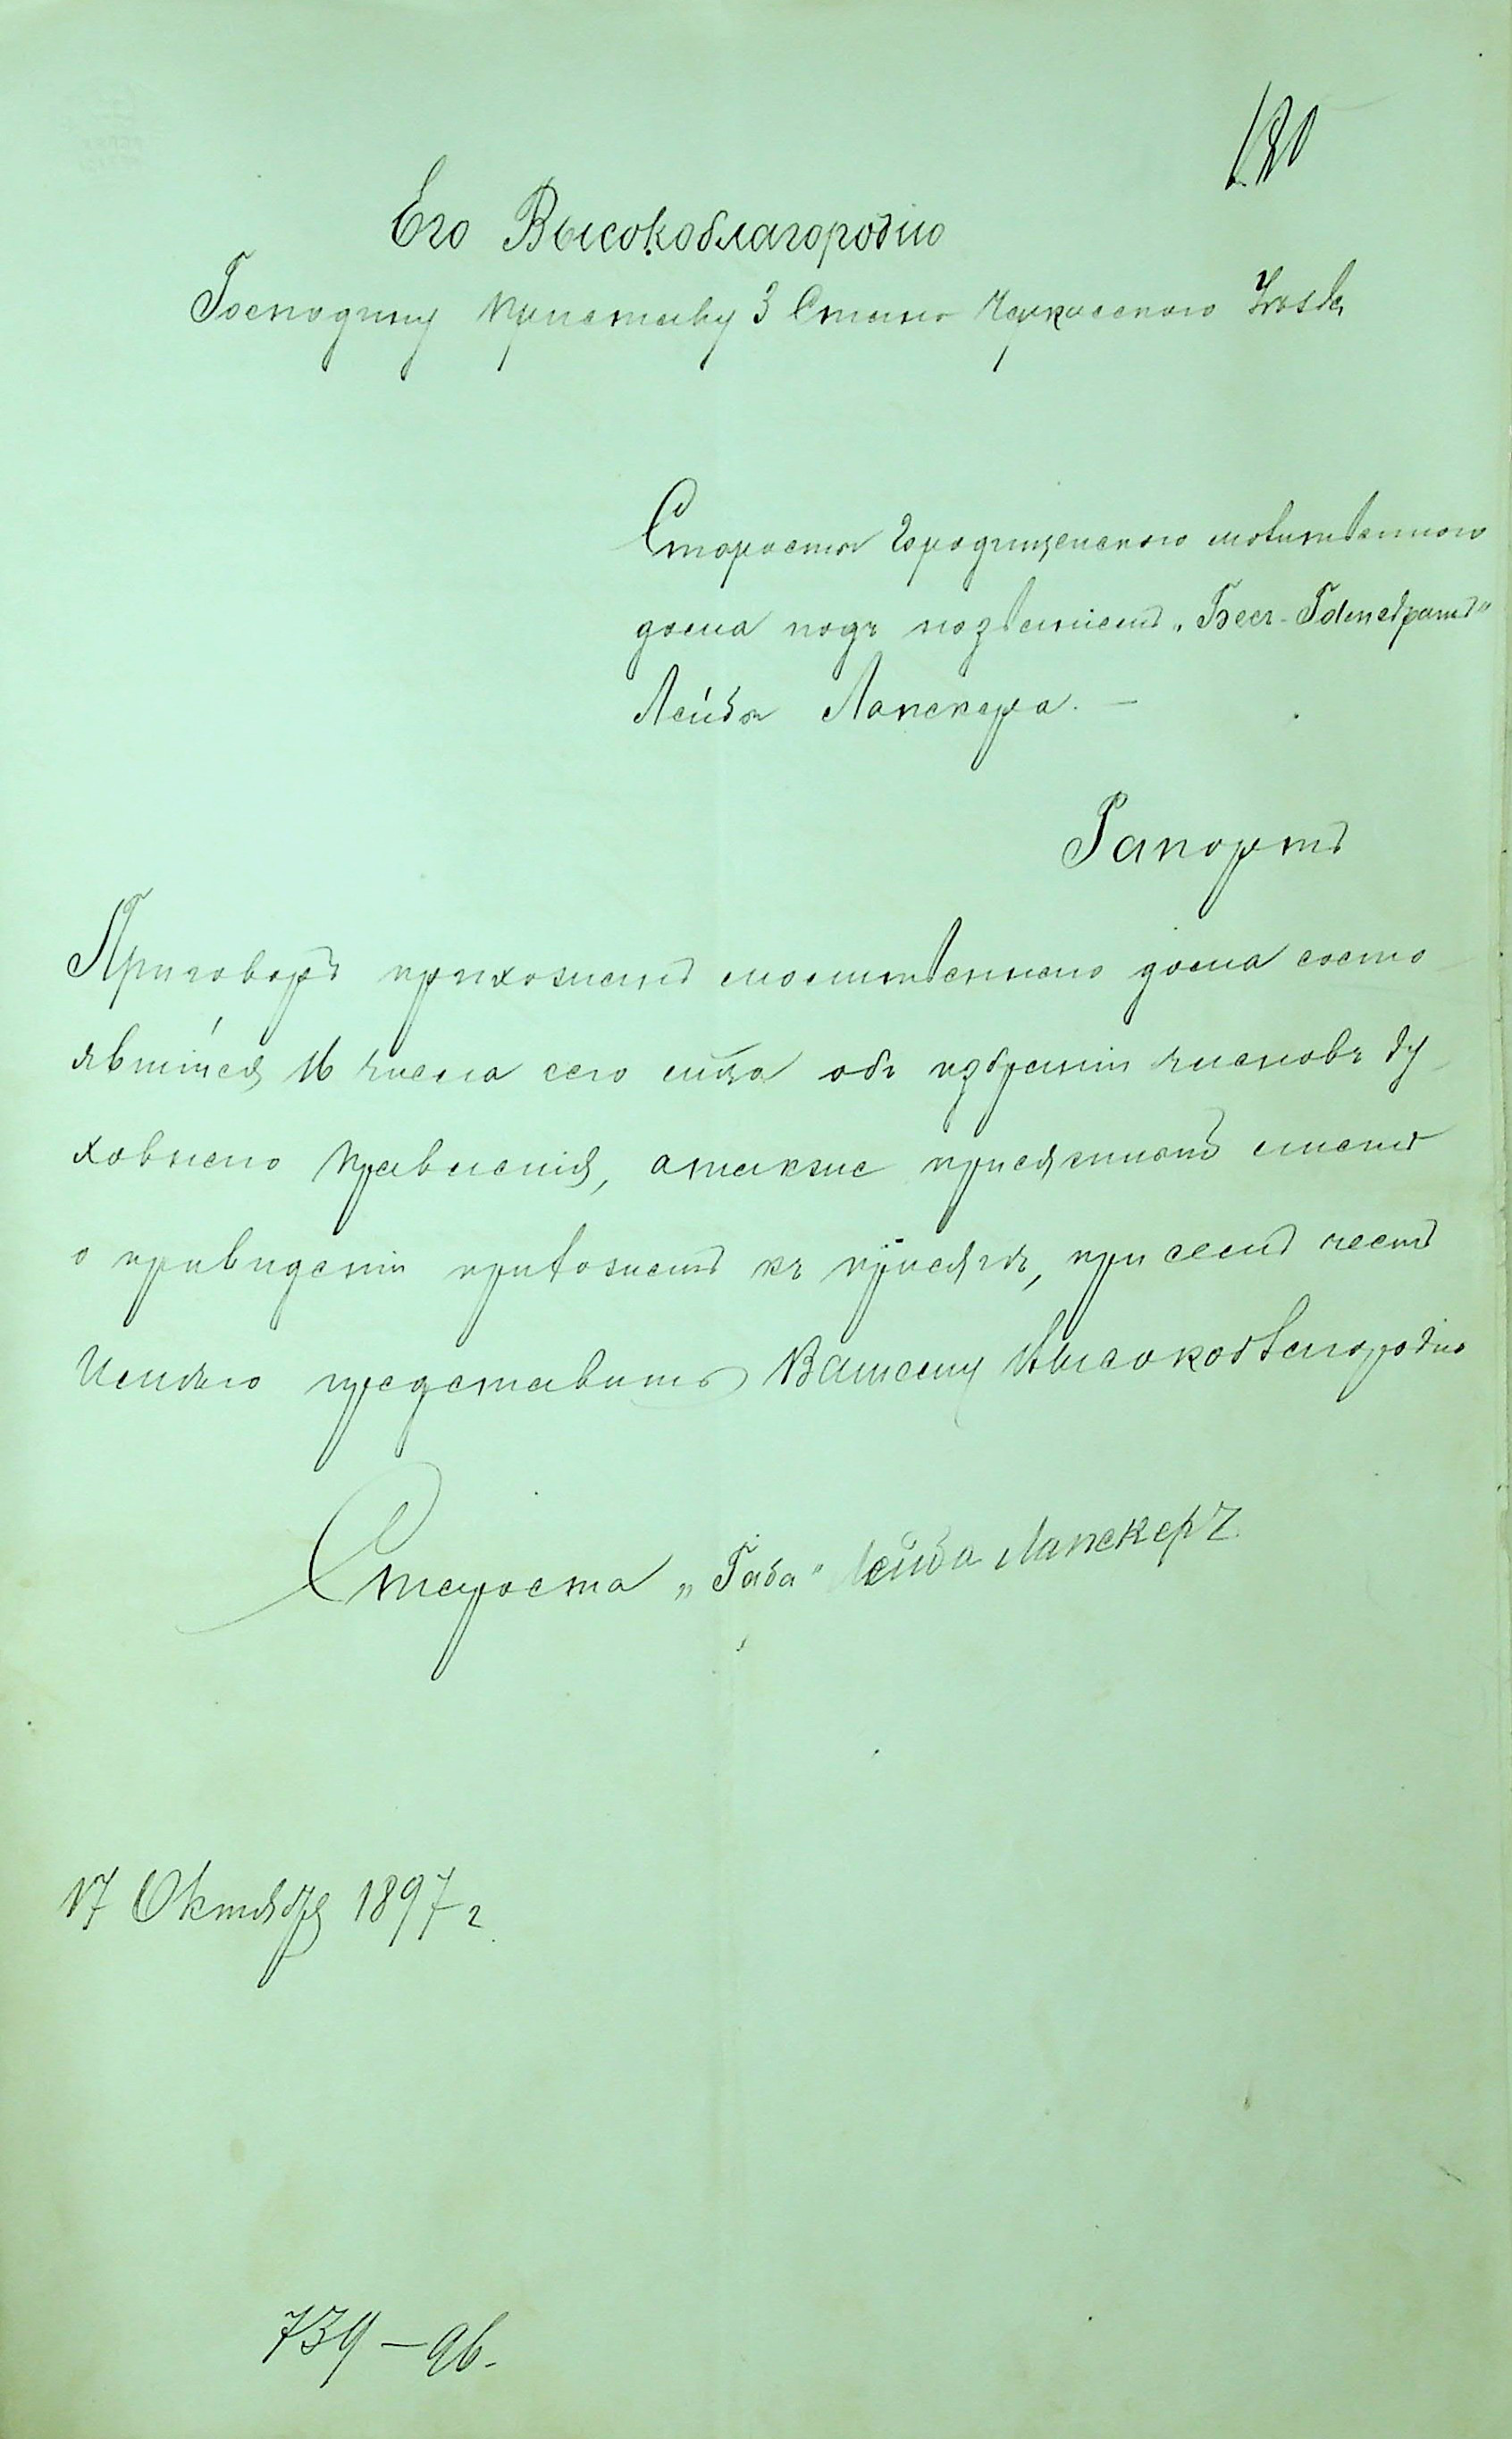 120
Его Высокоблагородію
Господину Приставу 3 Стана Черкасскаго Уѣзда
Старосты Городищенскаго молитвеннаго
дома подъ названіемъ „Бесъ-Гамедрашъ“
Лейбы Ланскера. —
Рапортъ
Приговоръ прихожанъ молитвеннаго дома состо
явшійся 16 числа сего мѣца объ избраніи членовъ Ду
ховнаго Правленія, а также присяжный листъ
о приведеніи прихожанъ къ присягѣ, при семъ честь
Имѣю представить Вашему Высокоблагородію
Староста „Габа“ Лейба Ланскеръ
17 Октября 1897 г.
739 — 96.